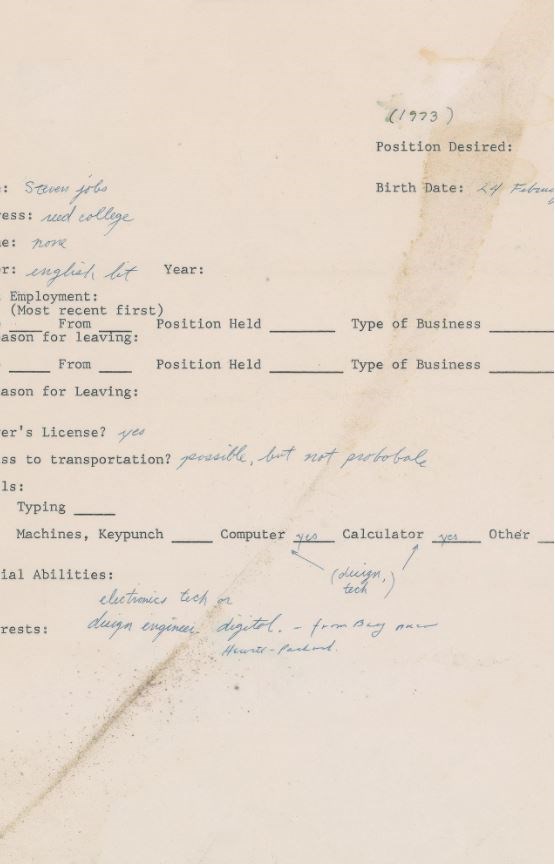 (1973)
Position Desired:
e: Steven jobs Birth Date: 24 Februa
ress: reed college
ne: none
or: english lit Year:
Employment:
(Most recent first)
___ From ___ Position Held ___ Type of Business ___
eason for leaving:
___ From ___ Position Held ___ Type of Business ___
ason for Leaving:
er's License? yes
ss to transportation? possible, but not probobale
ls:
Typing ___
Machines, Keypunch ___ Computer yes Calculator yes Other ___
(design,
tech)
ial Abilities:
electronics tech or
rests: design engineer. digital. - from Bay
Hewitt-Packard.